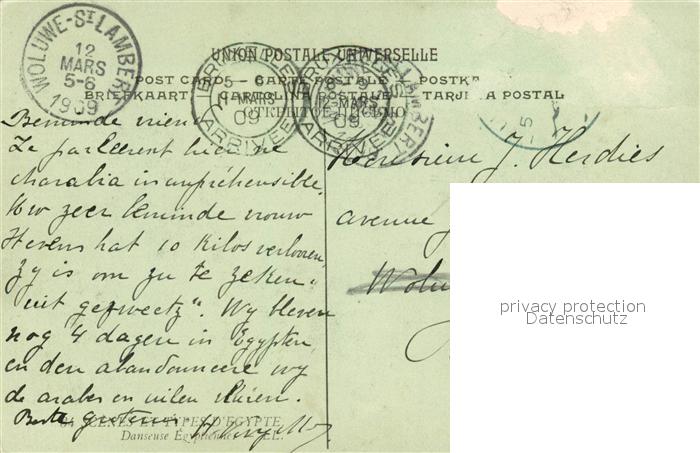 WOLUWE-ST LAMBERT
12
MARS
5-6
1909
UNION POSTALE UNIVERSELLE
POST CARD — CARTE POSTALE — POSTK
BRIEFKAART — CARTOLINA POSTALE — TARJ A POSTAL
BRUXELLES
ARRIVÉE
MARS
09
12-MARS
09
Beminde vriend
Ze parleerent hier ne
charabia incompréhensible.
Uw zeer beminde vrouw
Stevens hat 10 Kilos verlooren,
zy is om zu te zeken "
uit gezweetz". Wy bleven
nog 4 dagen in Egypten
en den abandonneere wy
de araber en
Beste groeten
Monsieur J. Herdies
avenue
Wolu
SCÈNES ET TYPES D'EGYPTE
Danseuse Égyptienne LL.
privacy protection
Datenschutz